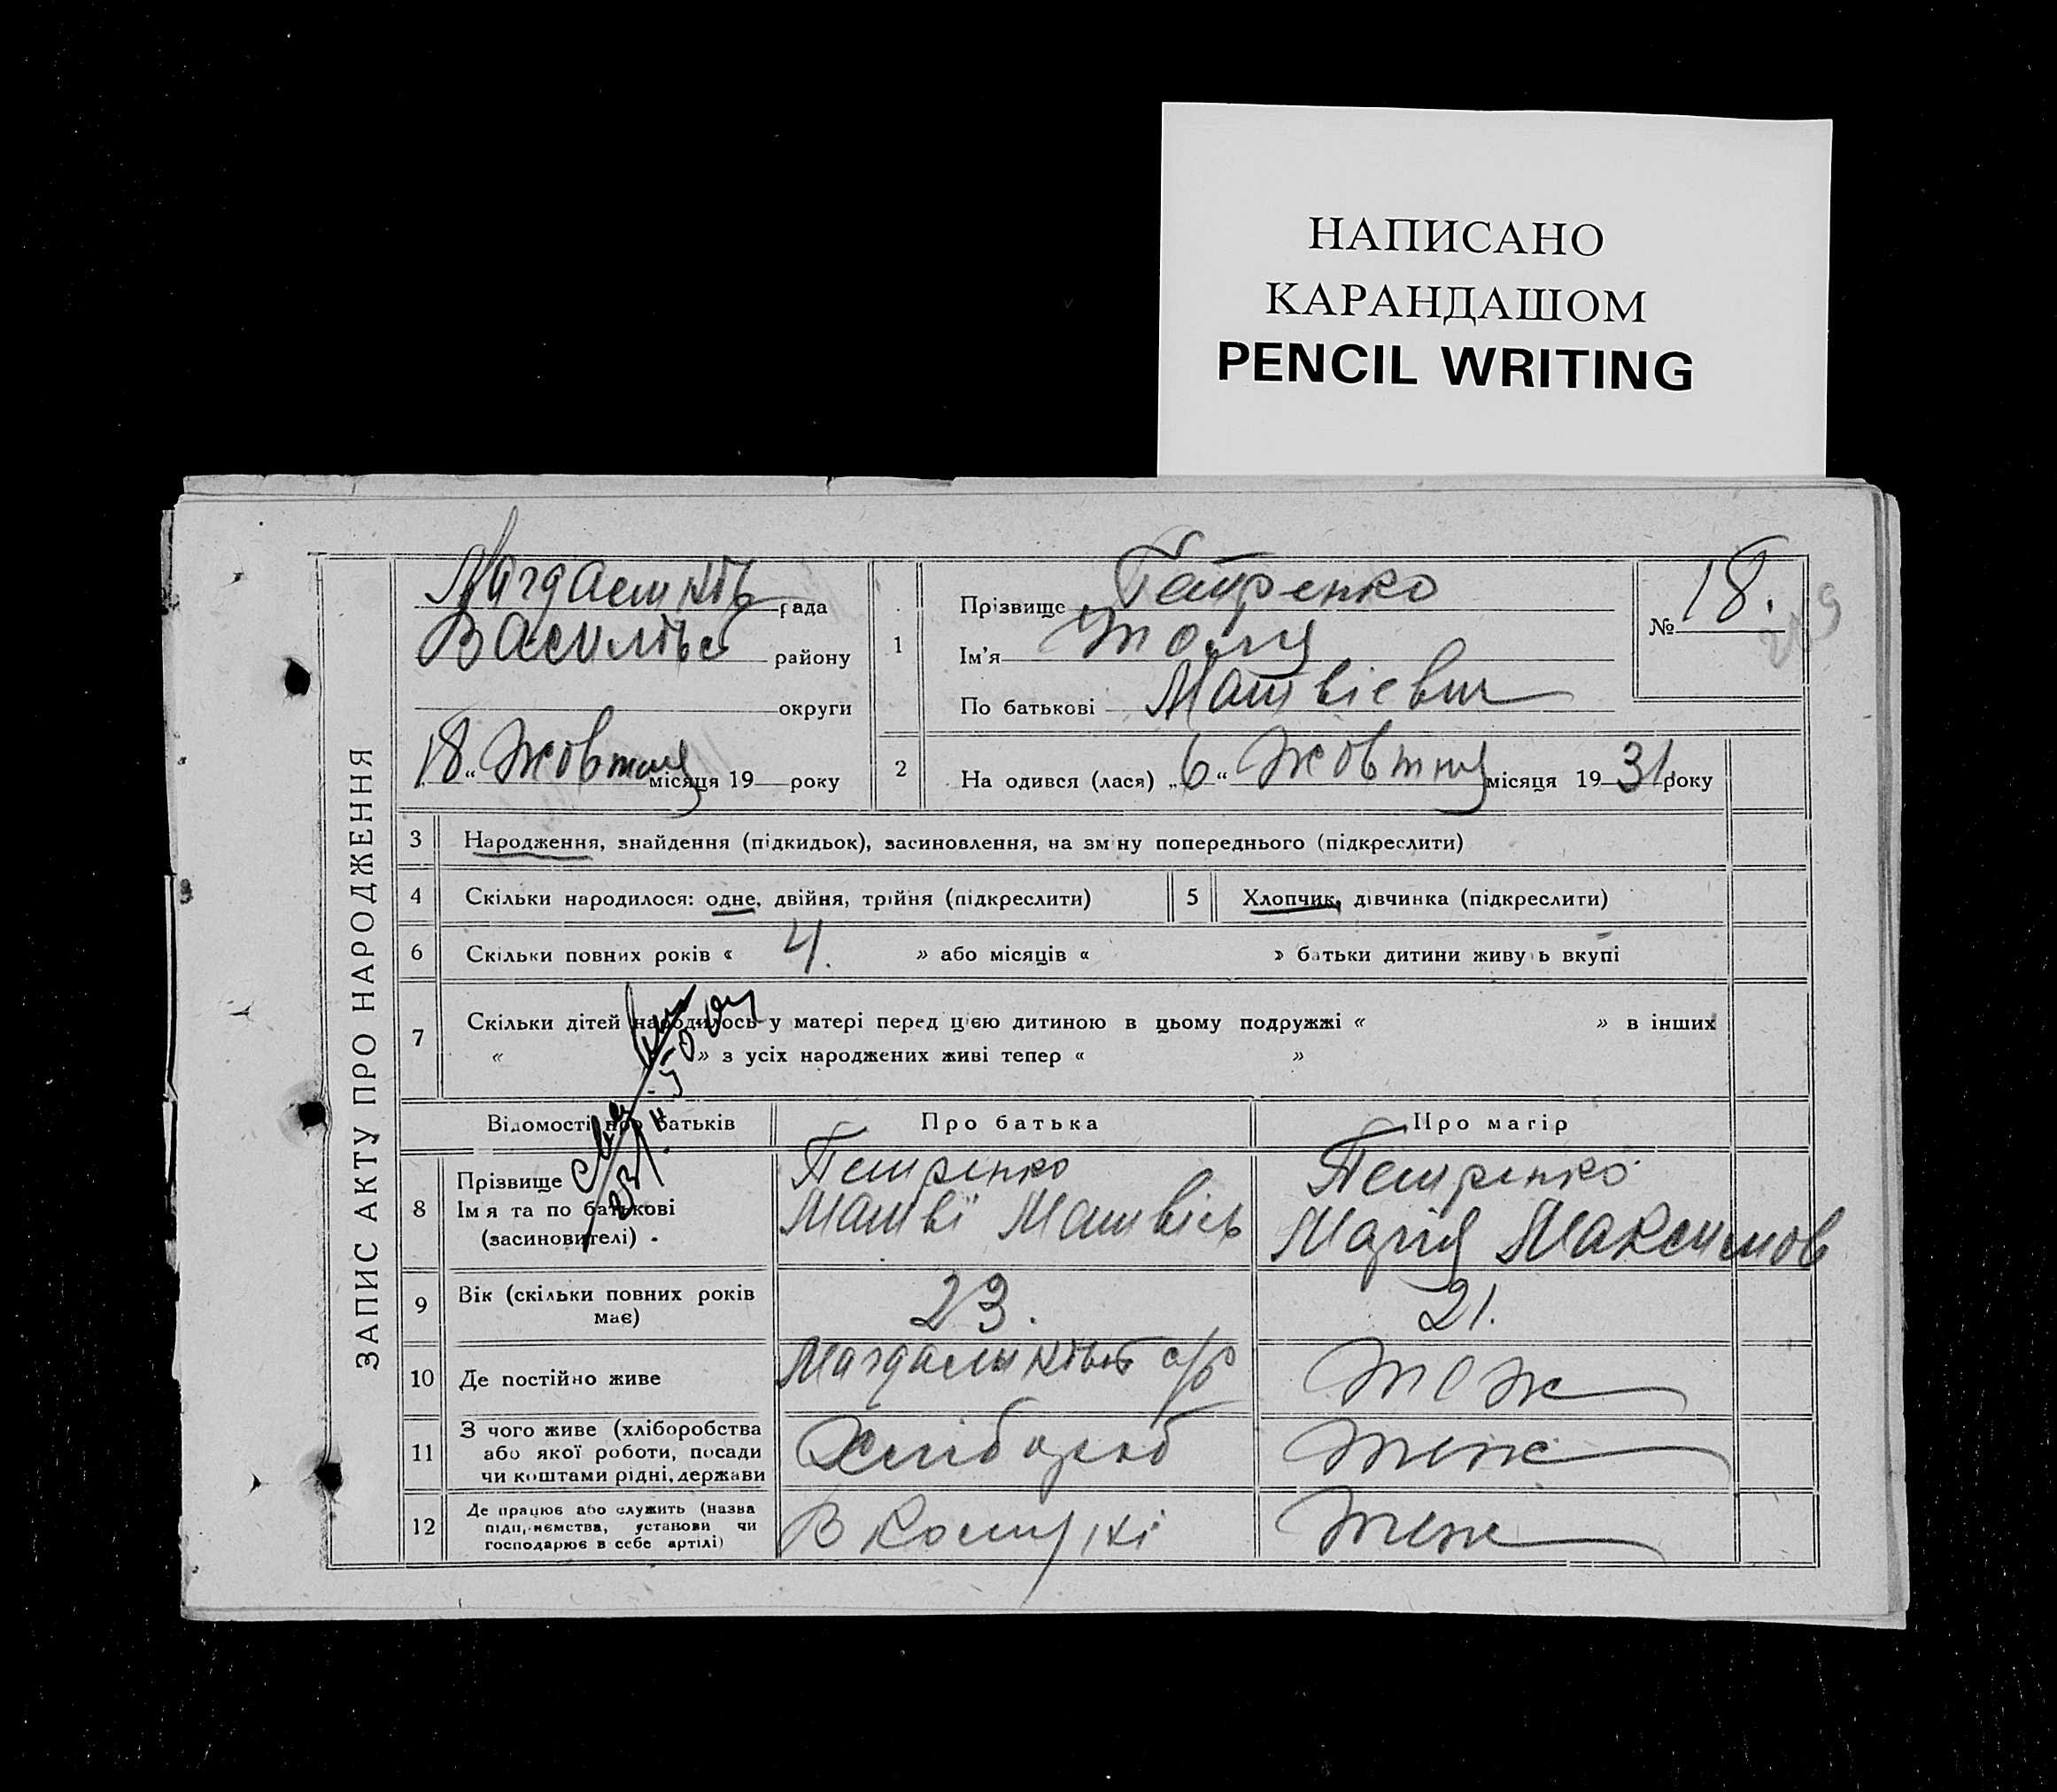 НАПИСАНО
КАРАНДАШОМ
PENCIL WRITING
ЗАПИС АКТУ ПРО НАРОДЖЕННЯ
рада
району
округи
18 „ “ Жовтня місяця 19 року
1
Прізвище Петренко
Ім'я Толя
По батькові Матвієвич
№ 18.
2 На одився (лася) „ 6 “ Жовтня місяця 19 31 року
3 Народження, знайдення (підкидьок), засиновлення, на зм ну попереднього (підкреслити)
4 Скільки народилося: одне, двійня, трійня (підкреслити)
5 Хлопчик, дівчинка (підкреслити)
6 Скільки повних років « 4. » або місяців « » батьки дитини живу ь вкупі
7 Скільки дітей народилось у матері перед цією дитиною в цьому подружжі « » в інших
« » з усіх народжених живі тепер « »
Відомості про батьків
Про батька
Про матір
8 Прізвище
Ім я та по батькові
(засиновителі)
Петренко
Матвї Матвієв
Петренко
Марія Максимов
9 Вік (скільки повних років
має)
23.
21.
10 Де постійно живе
с/р
тож
11 З чого живе (хліборобства
або якої роботи, посади
чи коштами рідні, держави
Хлібороб
теж
12 Де працює або служить (назва
підприємства, установи чи
господарює в себе артілі)
В Комуні
теж